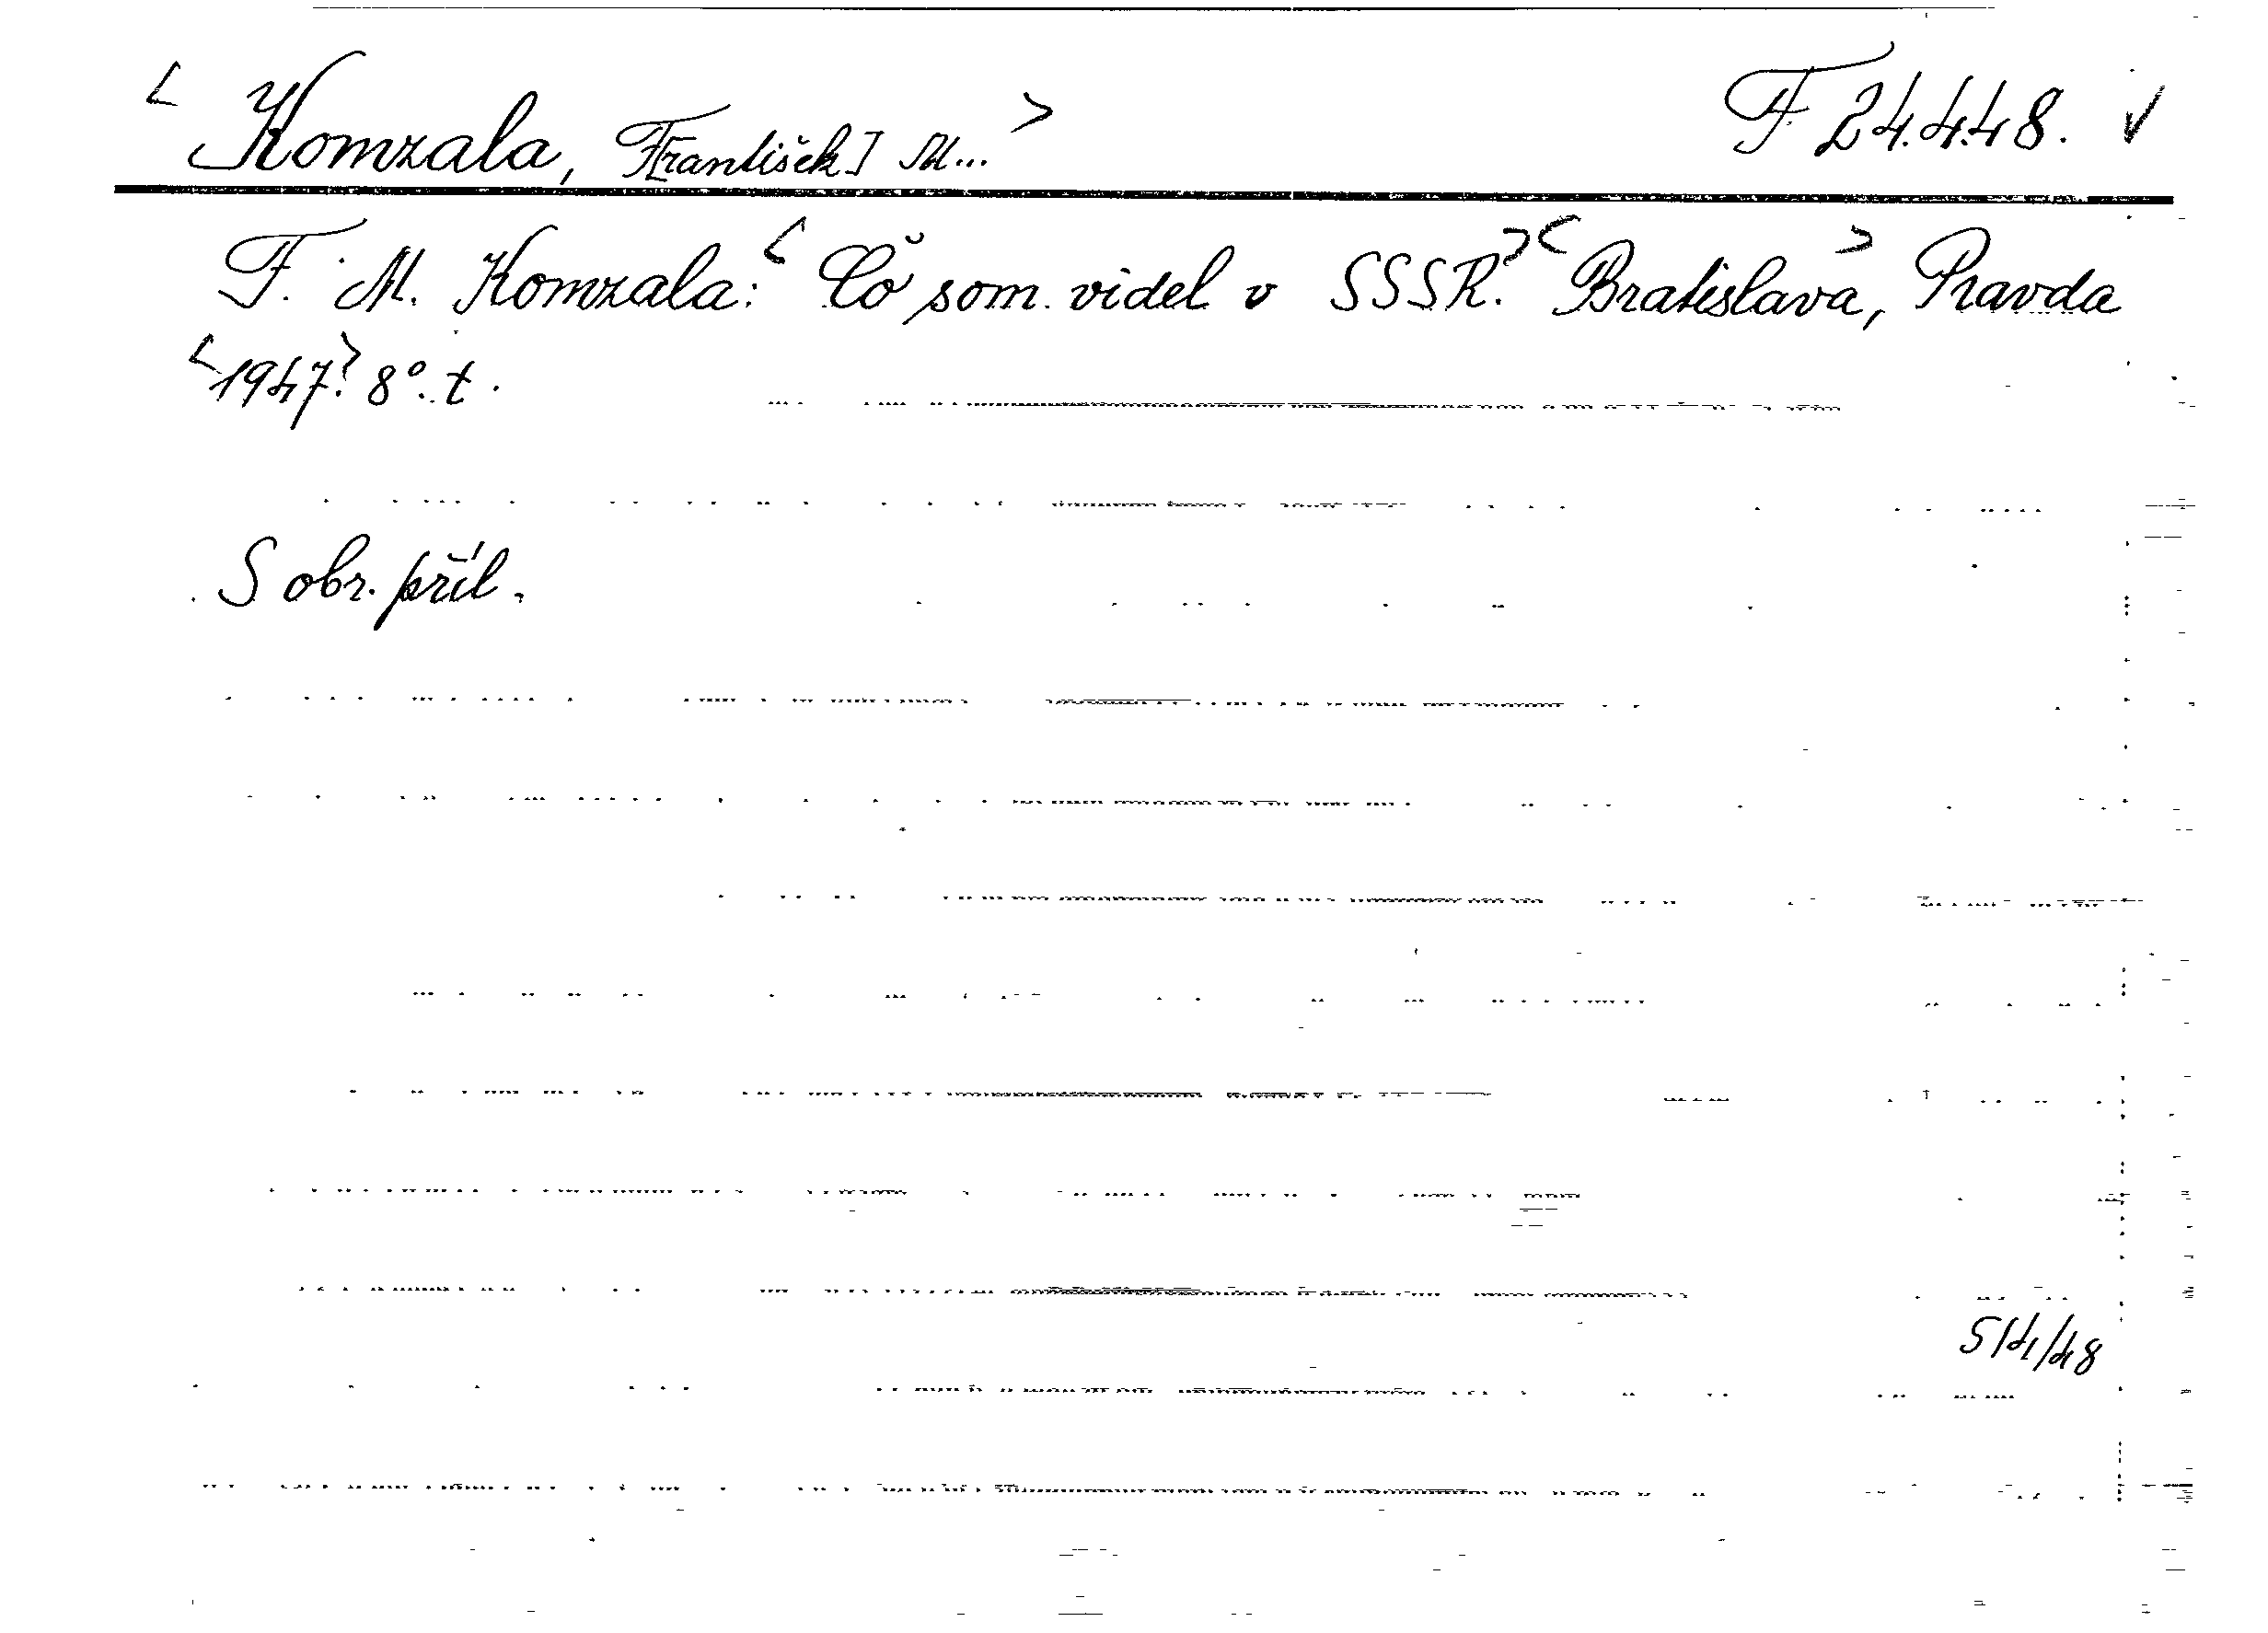 < Komzala, F[rantišek] M... > F 24.448. ✓
F. M. Komzala: < Čo som videl v SSSR. > < Bratislava >, Pravda
< 1947. > 8°. t.
S obr. příl.
5/4/48